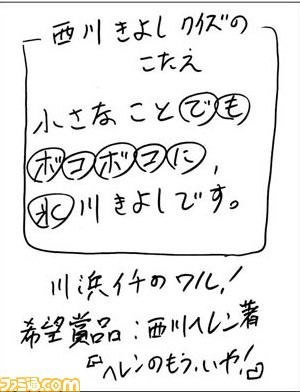 西川きよしクイズの
こたえ
小さなことでも
ボコボコに,
氷川きよしです。
川浜イチのワル!
希望賞品:西川ヘレン著
『ヘレンのもう、いや!』
ファミ通.com